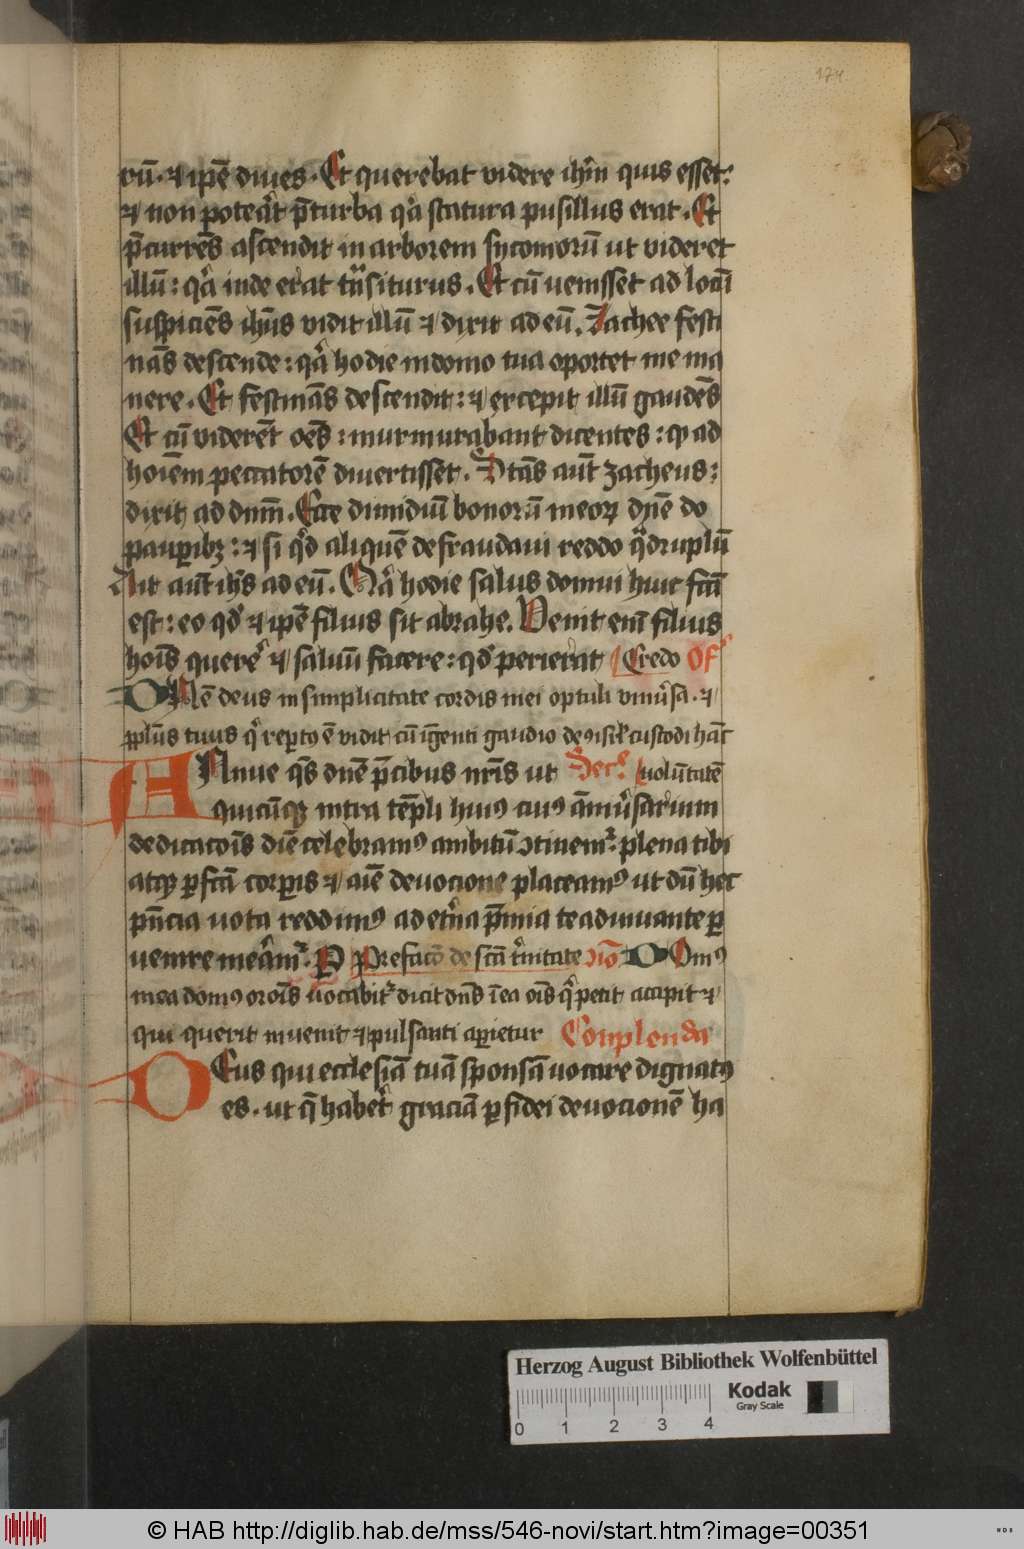 174
rū. ⁊ ip̄e diues. Et querebat videre ihm̄ quis esset:
⁊ non poteāt p̄ turba qͣ statura pusillus erat. Et
p̄currēs ascendit in arborem sycomorū ut videret
illū: qͣ inde erat tn̄siturus. Et cū uenisset ad locū
suspiciēs ihūs vidit illū ⁊ dixit ad eū. Zachee festi
nās descende: qͣ hodie in domo tua oportet me ma
nere. Et festinās descendit: ⁊ excepit illū gaudēs
Et cū viderēt oēs: murmurabant dicentes: ꝙ ad
hoiēm peccatorē diuertisset. Stās aūt zacheus:
dixit ad dnm̄. Ecce dimidiū bonorū meoꝝ dn̄e do
paupibꝫ: ⁊ si qͦd aliquē defraudaui reddo qͣdruplū
Ait aūt ihs̄ ad eū. Qͣ hodie salus domui huic fcā
est: eo qd̓ ⁊ ip̄e filius sit abrahe. Venit eni filius
hoīs querē ⁊ saluū facere: qd̓ perierat Credo Of
DNē deus in simplicitate cordis mei optuli vniūsa. ⁊
pplm̄ tuus qͥ reptꝰ ē vidit cū īgenti gaudio deꝰ isrl̄ custodi hāc
ANnue qs̄ dn̄e p̄cibus nr̄is ut Secr̄ voluntatē
quicūqꝫ intra tēpli huiꝰ cuiꝰ āniūsarium
dedicacōis diē celebramꝰ ambitū ꝯtinemr̄ plena tibi
atqꝫ ꝑfcā corꝑis ⁊ aīe deuocione placeamꝰ ut dū hec
pn̄cia uota reddimꝰ ad etn̄a p̄mia te adiuuante ꝑ
uenire meām̄r. P Prefacō de scā tͥnitate Cīo DOmꝰ
mea domꝰ orōis uocabit̄ dicit dn̄s ī ea oīs qͥ petit accipit ⁊
qui querit inuenit ⁊ pulsanti aꝑietur Conplenda
DEus qui ecclesiā tuā sponsā uocare dignatꝰ
es. ut q̄ haberet graciā ꝑ fidei deuocionē ha
Herzog August Bibliothek Wolfenbüttel
Kodak
Gray Scale
0 1 2 3 4
© HAB http://diglib.hab.de/mss/546-novi/start.htm?image=00351